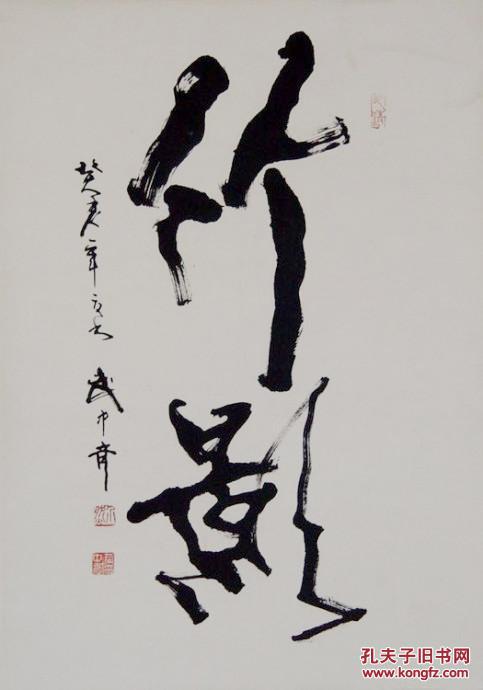 竹影
癸亥年夏
武中奇
孔夫子旧书网
www.kongfz.com